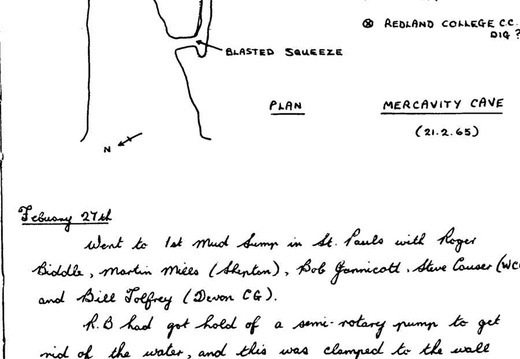 ⊗ REDLAND COLLEGE C.C.
DIG ?
BLASTED SQUEEZE
PLAN
MERCAVITY CAVE
(21.2.65)
N
Febuary 27th
Went to 1st Mud Sump in St. Pauls with Roger
Biddle, Martin Mills (Shepton), Bob Gannicott, Steve Causer (WCC
and Bill Tolfrey (Devon CG).
R.B had got hold of a semi-rotary pump to get
rid of the water, and this was clamped to the wall